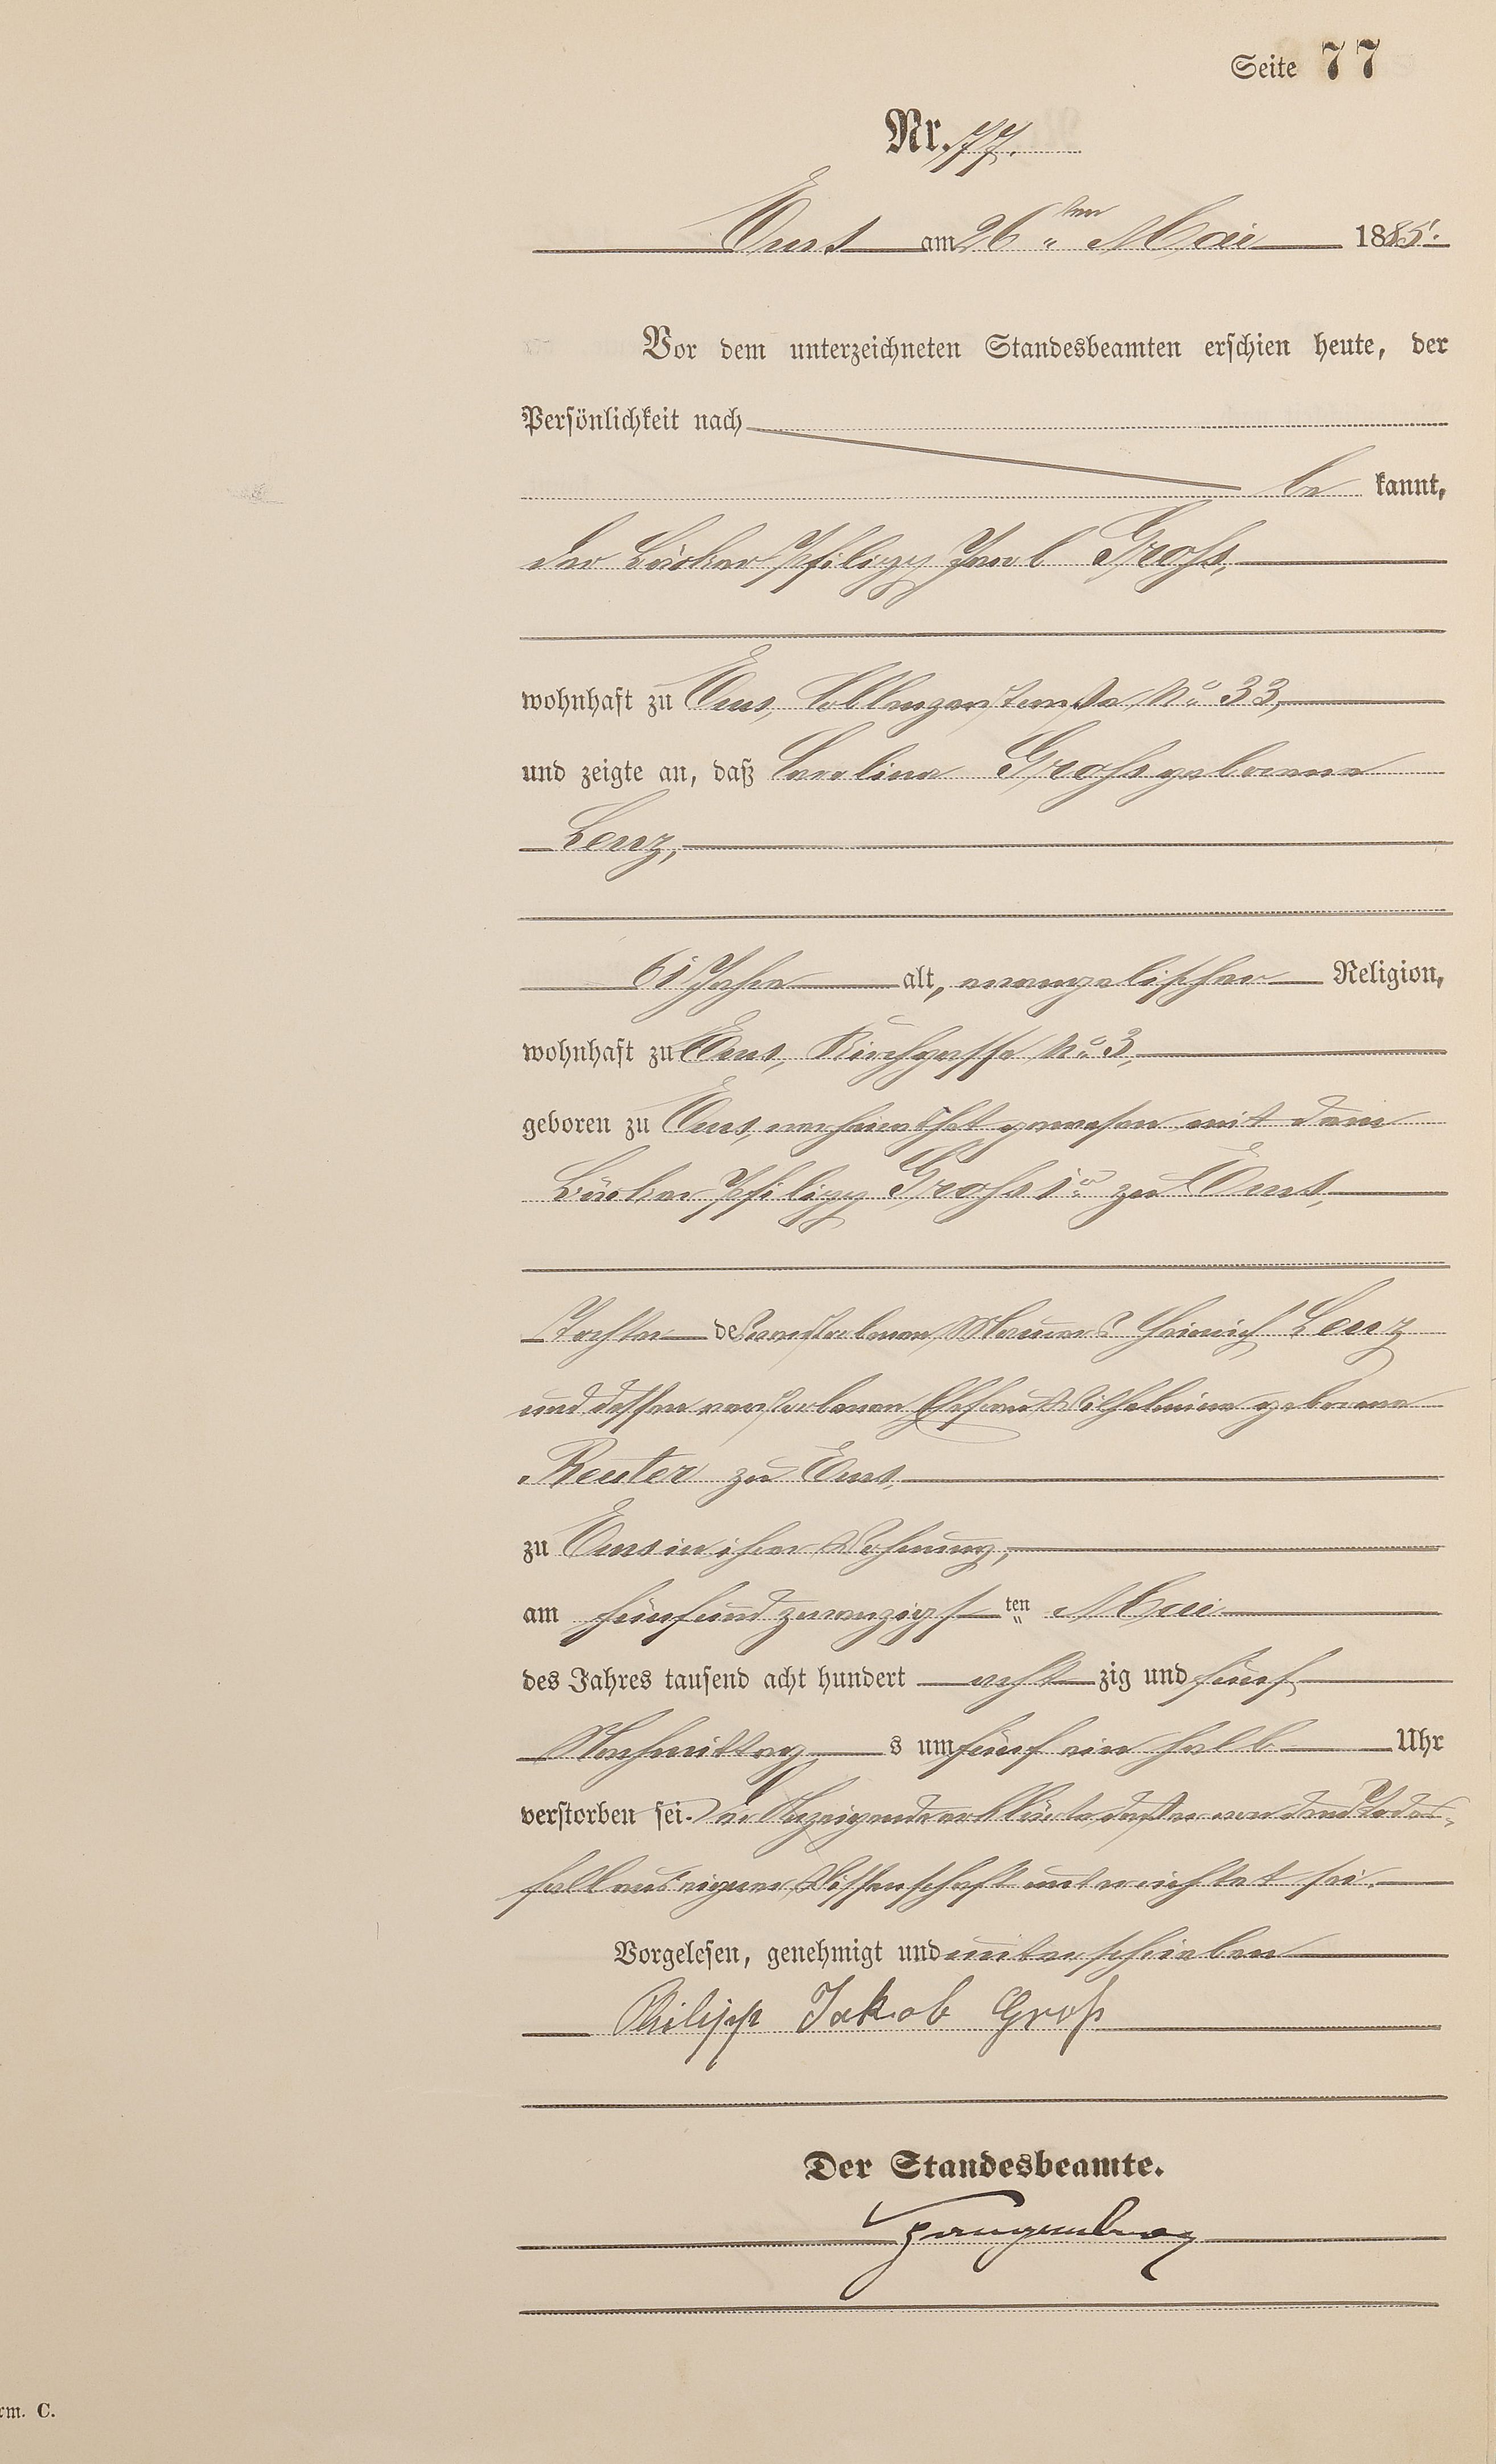 Seite 77
Nr. 77.
Ems am 26ten Mai 1885.
Vor dem unterzeichneten Standesbeamten erschien heute, der
Persönlichkeit nach
be kannt,
der Bäcker Philipp Jacob Groß,
wohnhaft zu Ems, Coblenzerstraße No 33,
und zeigte an, daß Carolina Groß geborene
Lenz,
61 Jahre alt, evangelischer Religion,
wohnhaft zu Ems, Kirchgasse No 3,
geboren zu Ems, verheirathet gewesen mit dem
Bäcker Philipp Groß 1r zu Ems,
Tochter des verstorbenen Maurers Heinrich Lenz
und dessen verstorbenen Ehefrau Wilhelmine geborene
Reuter zu Ems,
zu Ems in ihrer Wohnung,
am fünfundzwanzigsten Mai
des Jahres tausend acht hundert acht zig und fünf
Nachmittag s um fünf ein halb Uhr
verstorben sei. Der Anzeigende erklärte daß er von dem Todes-
fall aus eigener Wissenschaft unterrichtet sei.
Vorgelesen, genehmigt und unterschrieben
Philipp Jakob Groß
Der Standesbeamte.
rm. C.